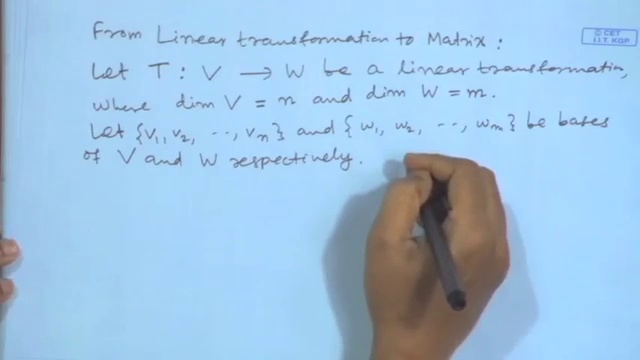 © CET
I.I.T. KGP
From Linear transformation to Matrix :
Let T : V → W be a linear transformation,
where dim V = n and dim W = m.
Let {v₁, v₂, ..., vₙ} and {w₁, w₂, ..., wₘ} be bases
of V and W respectively.